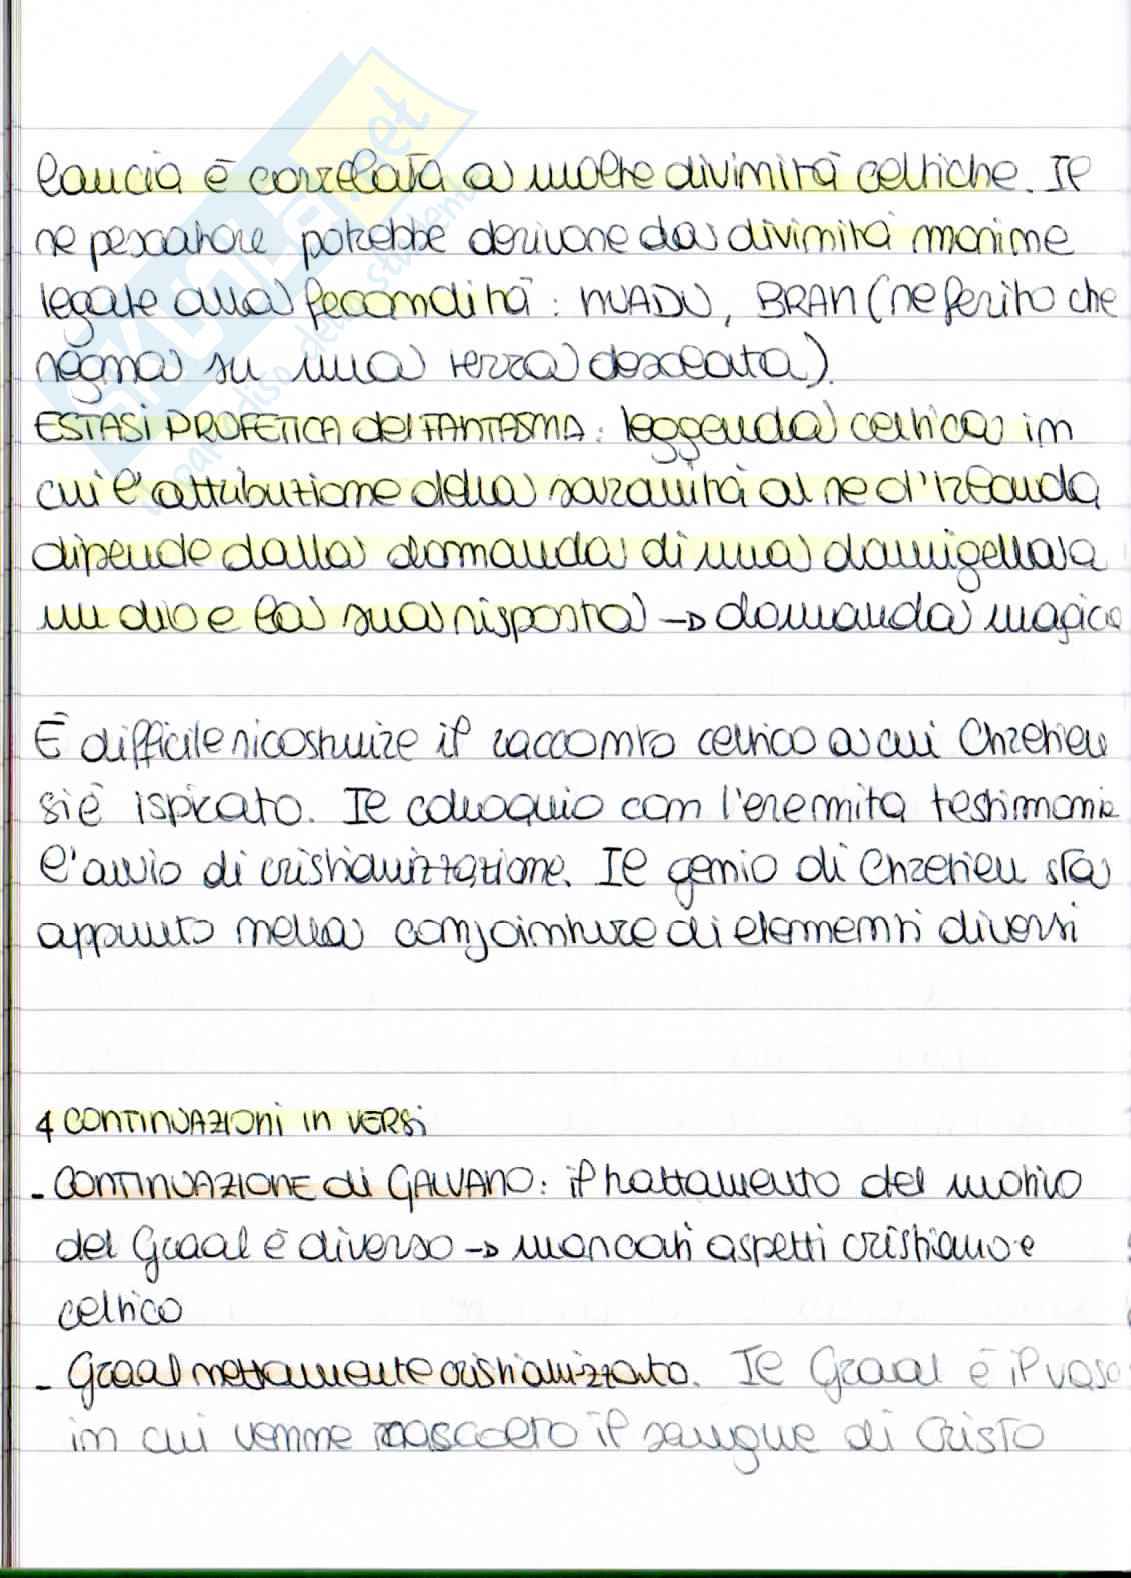 lancia è correlata a molte divinità celtiche. Il
re pescatore potrebbe derivare da divinità marine
legate alla fecondità: NUADU, BRAN (re ferito che
regna su una terra desolata).
ESTASI PROFETICA del FANTASMA: leggenda celtica in
cui l'attribuzione della sovranità al re d'Irlanda
dipende dalla domanda di una damigella a
un dio e la sua risposta → domanda magica
È difficile ricostruire il racconto celtico a cui Chretien
si è ispirato. Il colloquio con l'eremita testimonia
l'avvio di cristianizzazione. Il genio di Chretien sta
appunto nella conjointure di elementi diversi
4 CONTINUAZIONI IN VERSI
- CONTINUAZIONE di GALVANO: il trattamento del motivo
del Graal è diverso → mancati aspetti cristiano e
celtico
- Graal nettamente cristianizzato. Il Graal è il vaso
in cui venne raccolto il sangue di Cristo
SKUOLA.net
il paradiso dello studente